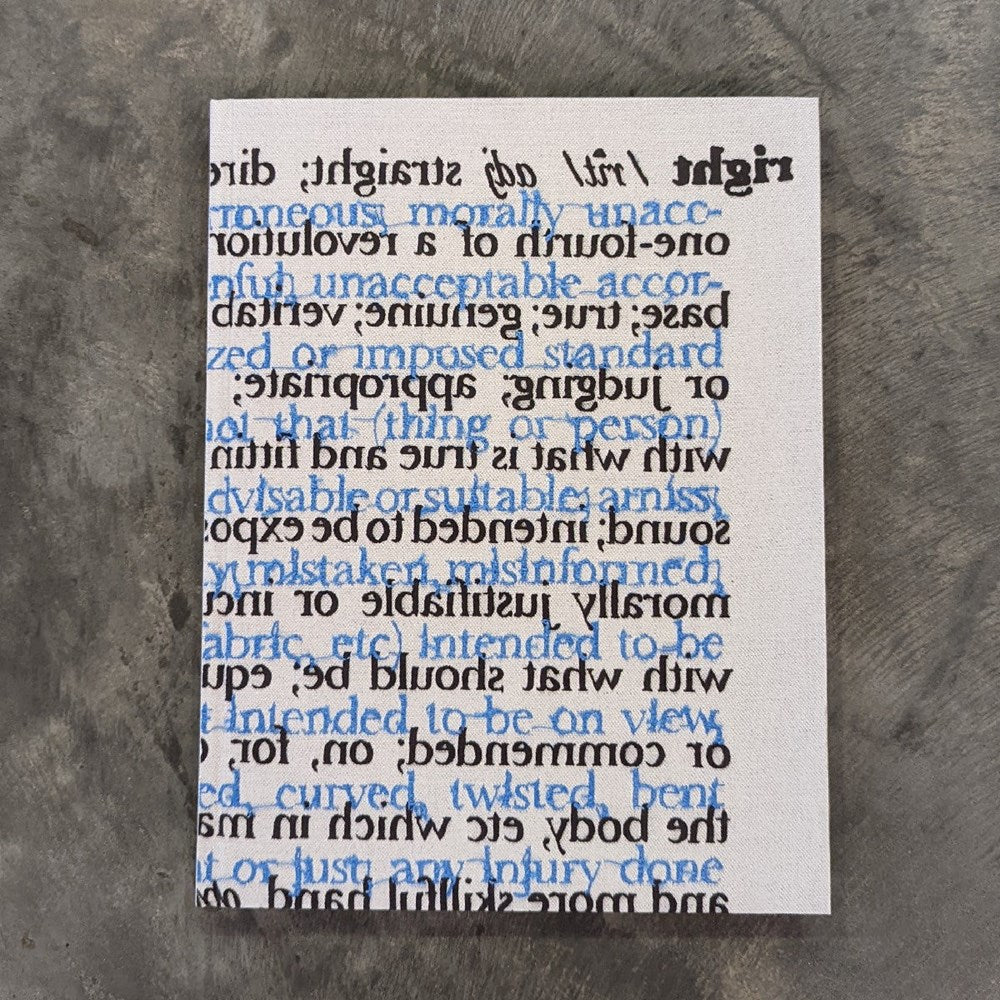 right /rīt/ adj straight; dire
roneous; morally unacc-
one-fourth of a revolution
nful; unacceptable accor-
base; true; genuine; veritab
zed or imposed standard
or judging; appropriate;
not that (thing or person)
with what is true and fittin
dvisable or suitable; amiss;
sound; intended to be expos
y; mistaken, misinformed;
morally justifiable or incu
abric, etc) intended to be
with what should be; equ
t intended to be on view;
or commended; on, for,
ed, curved, twisted, bent
the body, etc which in ma
t or just; any injury done
and more skillful hand